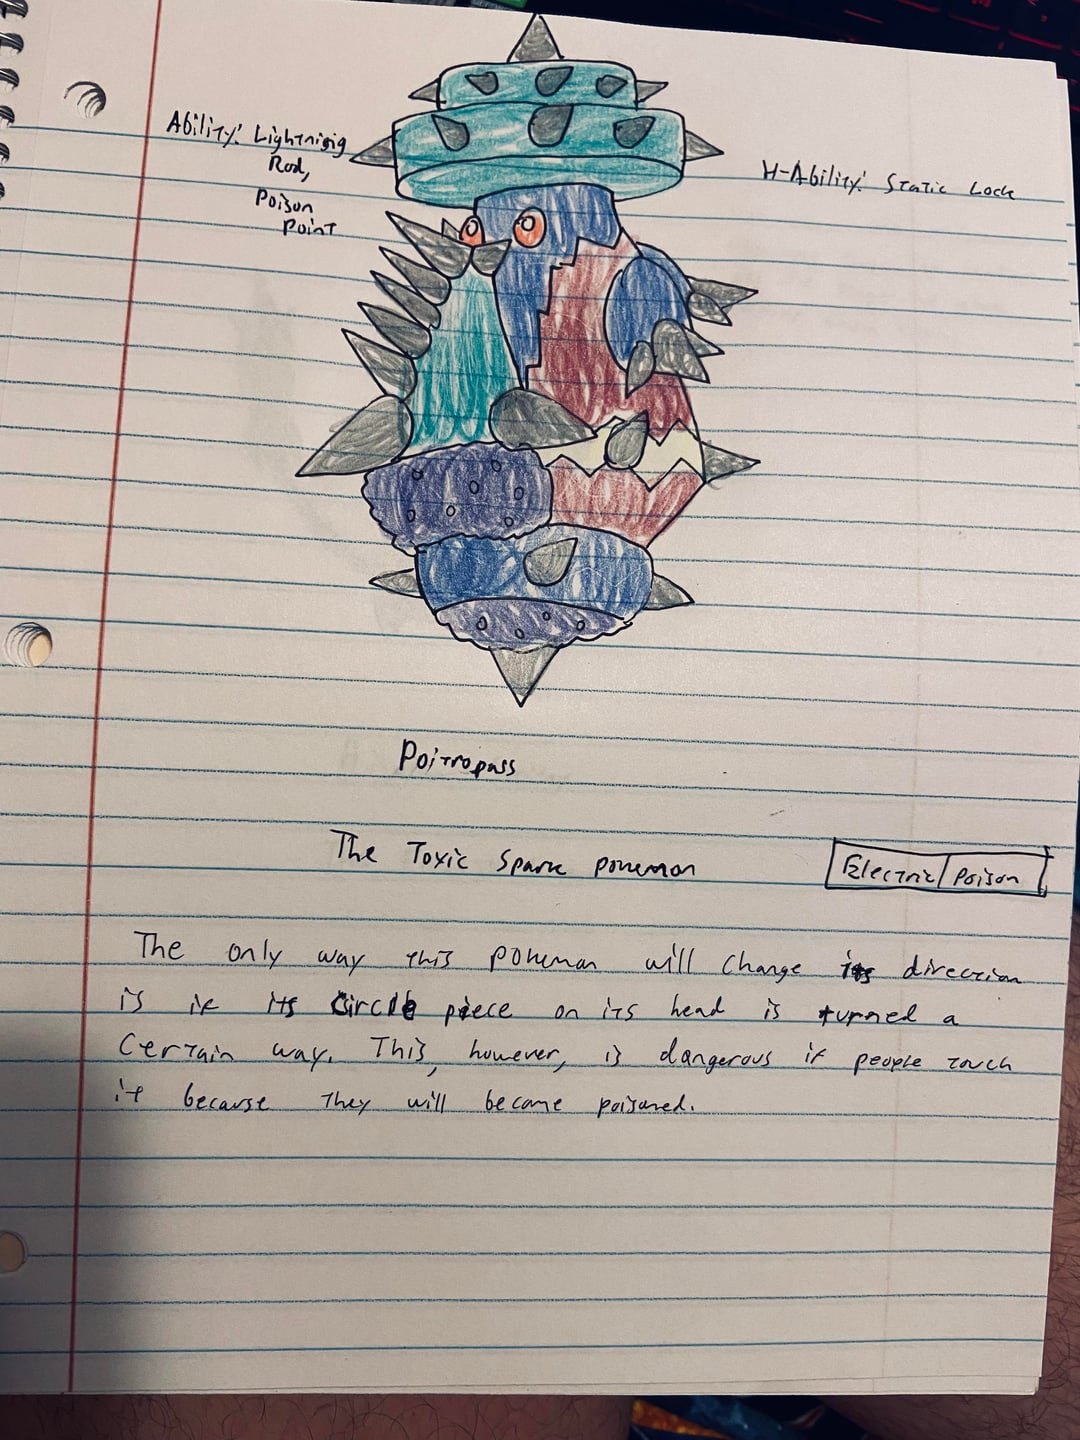 Ability: Lightnigig
Rod,
Poison
Point
H-Ability: Static Lock
Poitropass
The Toxic Spark pokemon
Electric/Poison
The only way this pokemon will change its direction
is if its circle piece on its head is turned a
certain way. This, however, is dangerous if people touch
it because they will become poisoned.